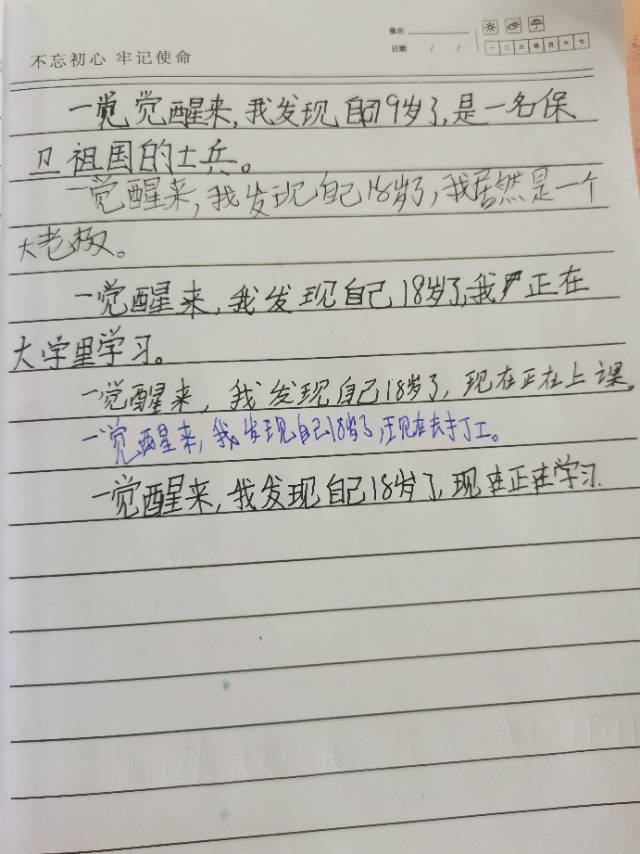 备忘
日期 / /
一 二 三 四 五 六 七
不忘初心 牢记使命
一觉觉醒来,我发现自己19岁了,是一名保
卫祖国的士兵。
一觉醒来,我发现自己18岁了,我居然是一个
大老板。
一觉醒来,我发现自己18岁了,我正在
大学里学习。
一觉醒来,我发现自己18岁了,现在正在上课。
一觉醒来,我发现自己18岁了,现在去打工。
一觉醒来,我发现自己18岁了,现在正在学习.